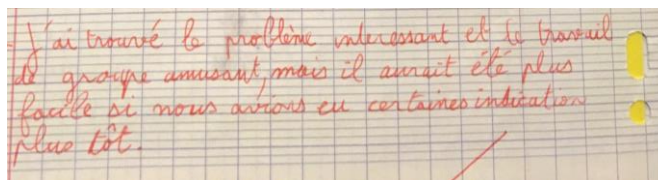 - J'ai trouvé le problème interessant et le travail
de groupe amusant, mais il aurait été plus
facile si nous avions eu certaines indication
plus tôt.